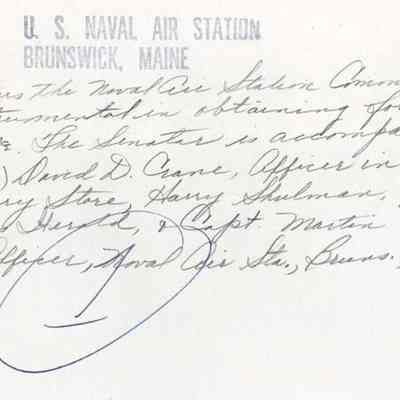 U. S. NAVAL AIR STATION
BRUNSWICK, MAINE
the Naval Air Station Comm
rumental in obtaining
The Senator is accompa
) David D. Crane, Officer in
ry Store, Harry Shulman,
Herald, & Capt. Martin
Officer, Naval Air Sta., Bruns.